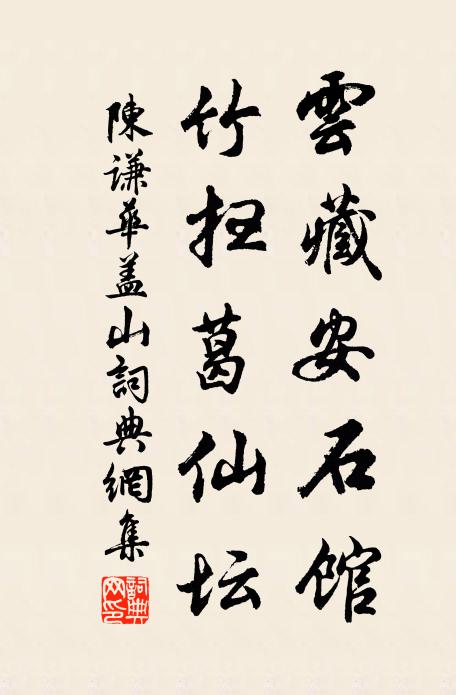 雲藏安石館
竹扫葛仙坛
陳谦華盖山詞典網集
詞典网印